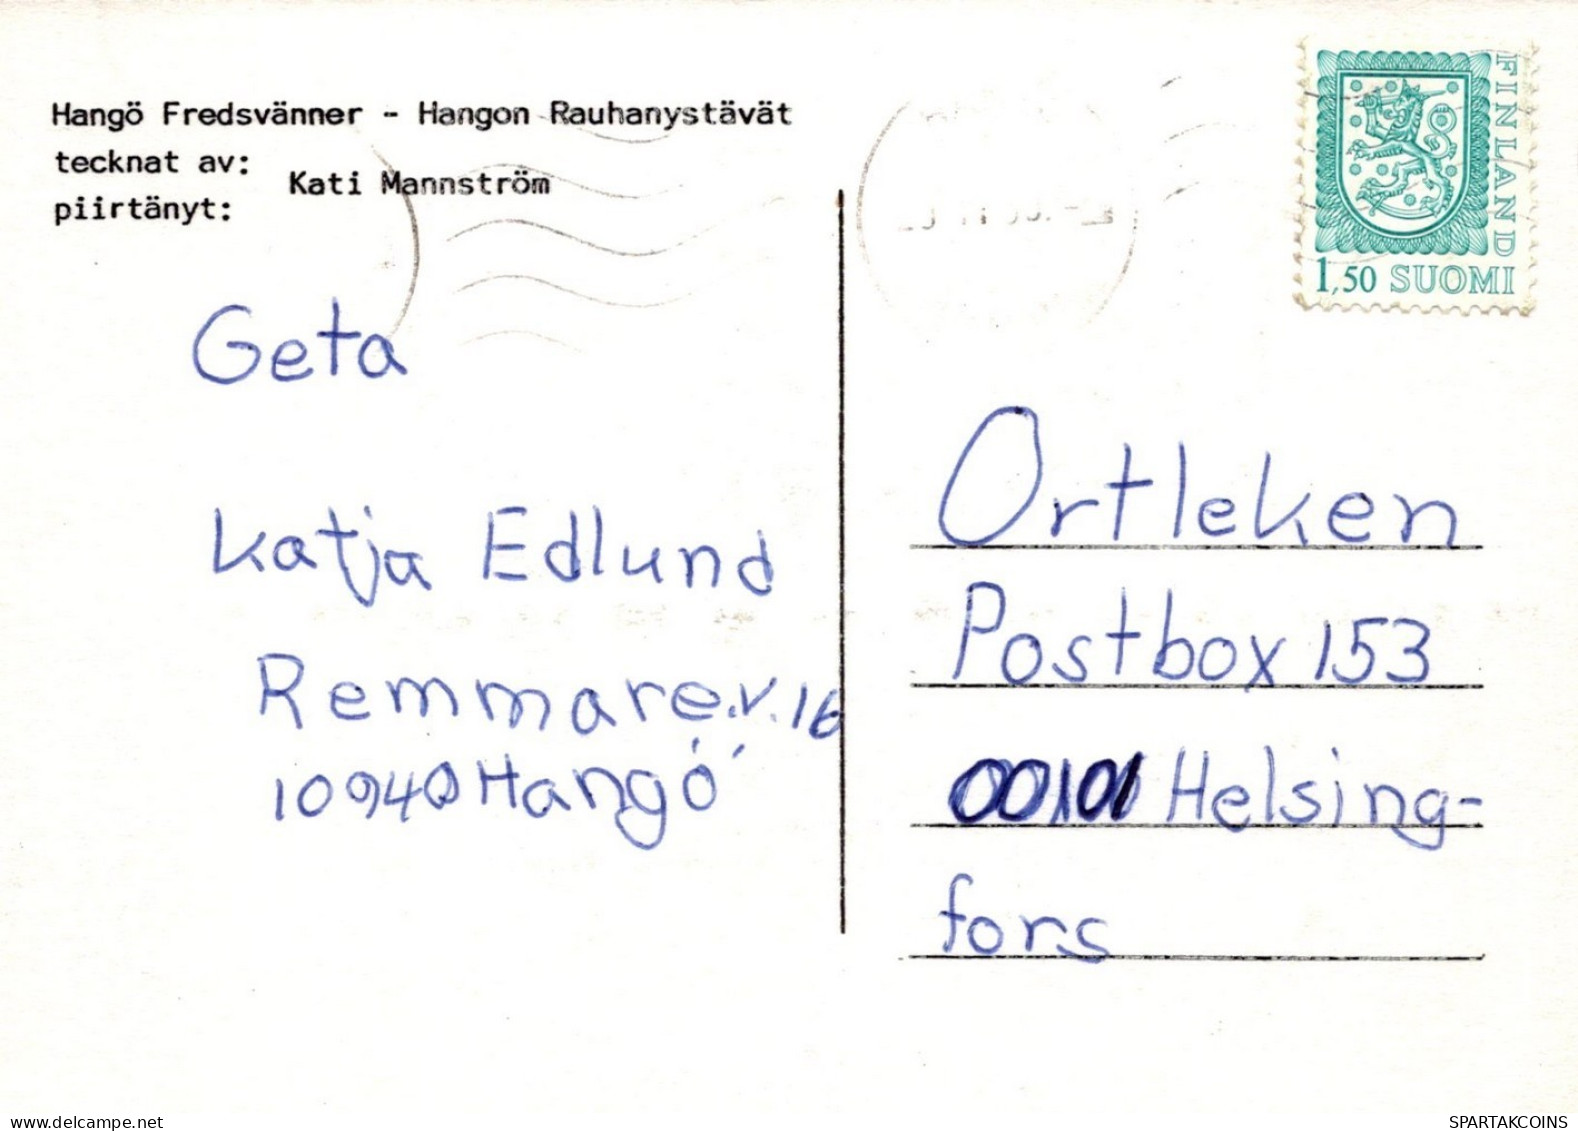 Hangö Fredsvänner - Hangon Rauhanystävät
tecknat av:
Kati Mannström
piirtänyt:
FINLAND
1,50 SUOMI
Geta
Katja Edlund
Remmare.v.16
10940 Hangö
Ortleken
Postbox 153
00101 Helsing-
fors
delcampe.net
SPARTAKCOINS